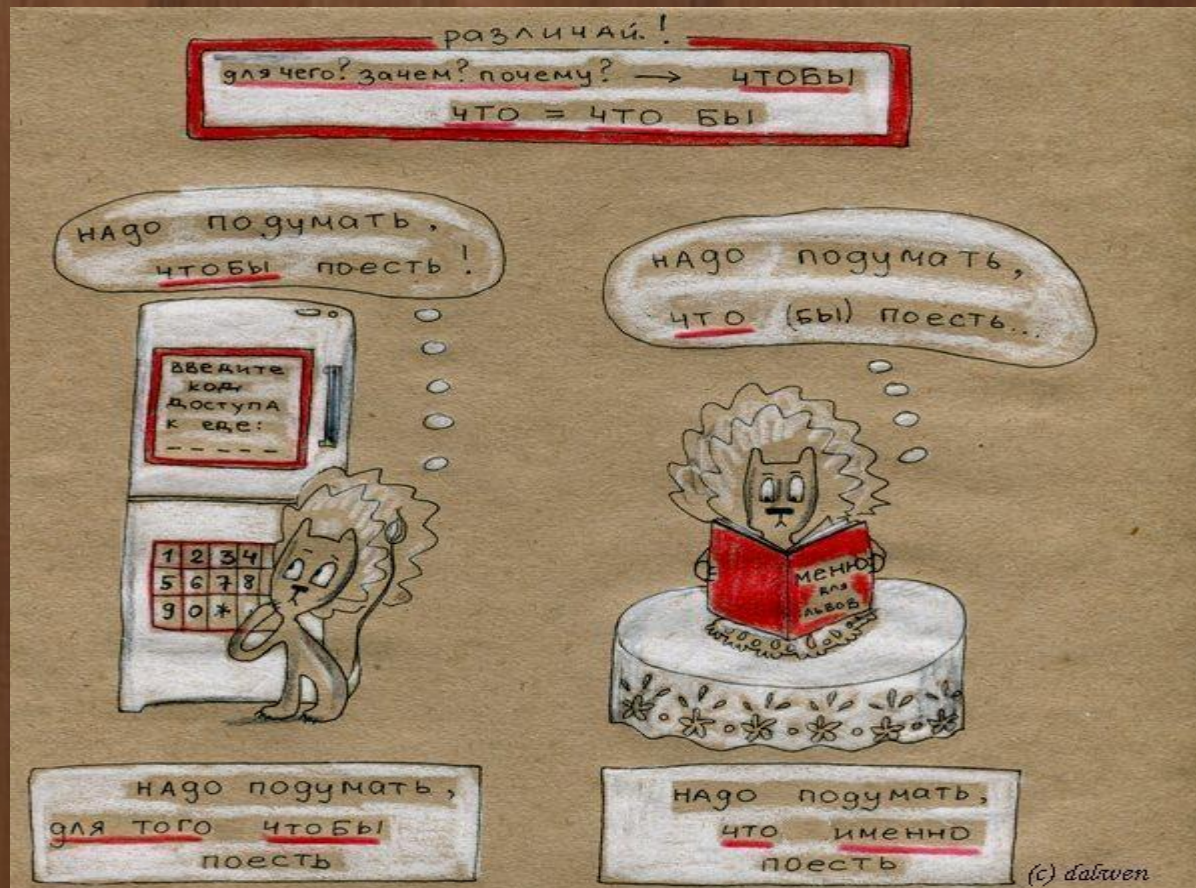 различай!
для чего? зачем? почему? → ЧТОБЫ
ЧТО = ЧТО БЫ
НАДО ПОДУМАТЬ,
ЧТОБЫ ПОЕСТЬ!
ВВЕДИТЕ
КОД
ДОСТУПА
К ЕДЕ:
_ _ _ _ _
1 2 3 4
5 6 7 8
9 0 *
НАДО ПОДУМАТЬ,
ЧТО (БЫ) ПОЕСТЬ...
МЕНЮ
ДЛЯ
ЛЬВОВ
НАДО ПОДУМАТЬ,
ДЛЯ ТОГО ЧТОБЫ
ПОЕСТЬ
НАДО ПОДУМАТЬ,
ЧТО ИМЕННО
ПОЕСТЬ
(c) dalwen